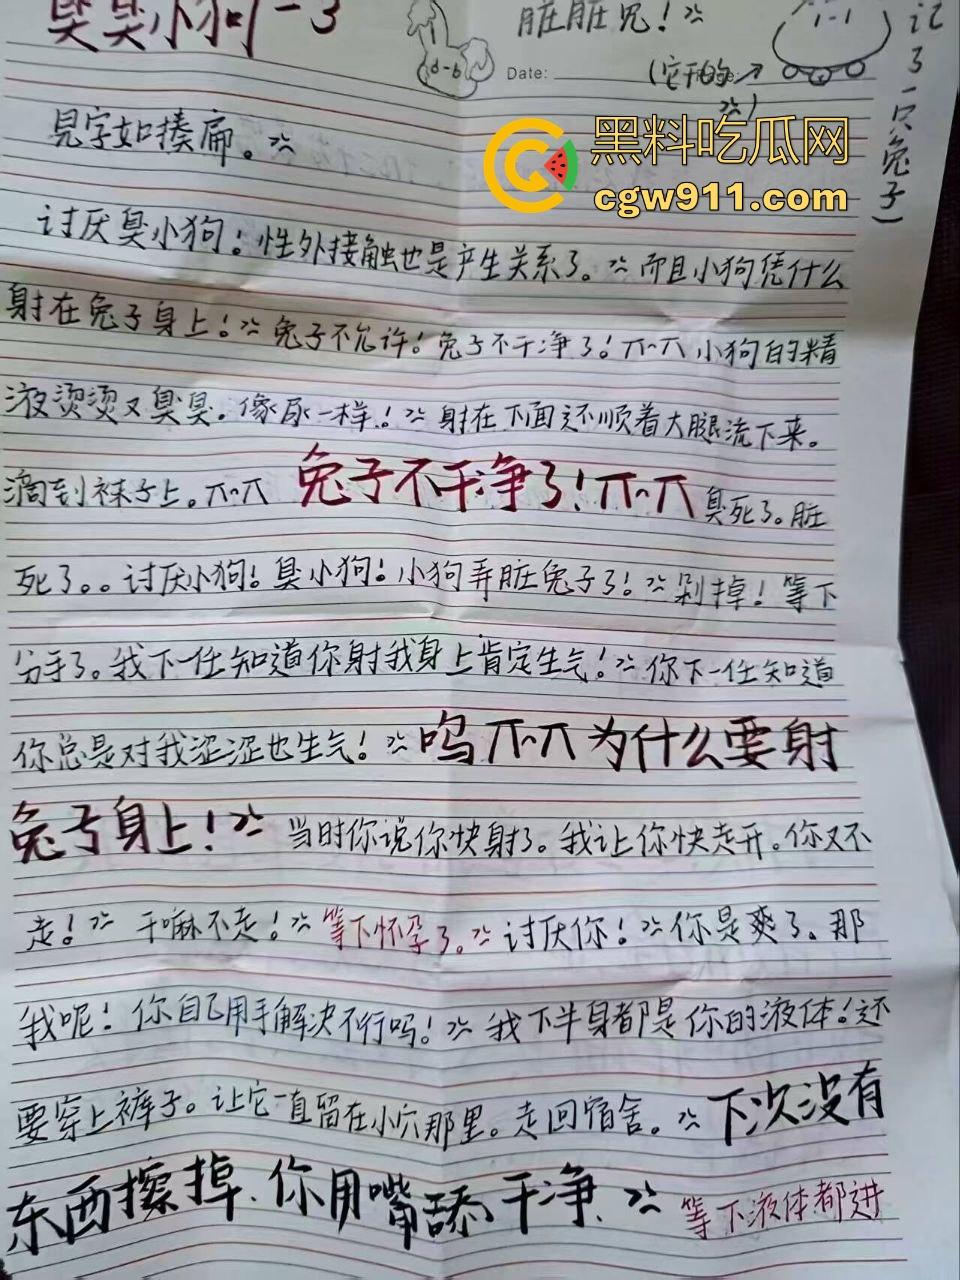 臭臭小狗-3
脏脏兜!
1-1
d-b
Date:
(它干的
记了一只兔子)
黑料吃瓜网
cgw911.com
見字如揍扁。
讨厌臭小狗!性外接触也是产生关系了。而且小狗凭什么
射在兔子身上!兔子不允许!兔子不干净了!ㄒ^ㄒ小狗的精
液烫烫又臭臭。像尿一样!射在下面还顺着大腿流下来。
滴到袜子上。ㄒ^ㄒ 兔子不干净了!ㄒ^ㄒ 臭死了。脏
死了。。讨厌小狗!臭小狗!小狗弄脏兔子了!剁掉!等下
分手了。我下一任知道你射我身上肯定生气!你下一任知道
你总是对我涩涩也生气!呜ㄒ^ㄒ为什么要射
兔子身上!当时你说你快射了。我让你快走开。你又不
走!干嘛不走!等下怀孕了。讨厌你!你是爽了。那
我呢!你自己用手解决不行吗!我下半身都是你的液体!还
要穿上裤子。让它一直留在小穴那里。走回宿舍。下次没有
东西擦掉、你用嘴舔干净、等下液体都进